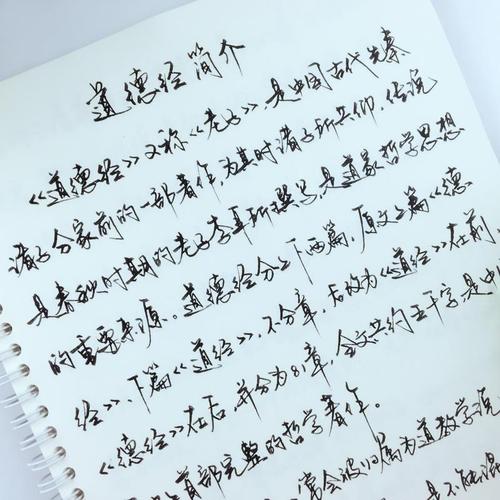 道德经简介
《道德经》又称《老子》,是中国古代先秦
诸子分家前的一部著作,为其时诸子所共仰,传说
是春秋时期的老子李耳所撰写,是道家哲学思想
的重要来源。道德经分上下两篇,原文上篇《德
经》、下篇《道经》,不分章,后改为《道经》在前,
《德经》在后,并分为81章,全文共约五千字,是中
首部完整的哲学著作。
常会被归属为道教学说,
是不能混